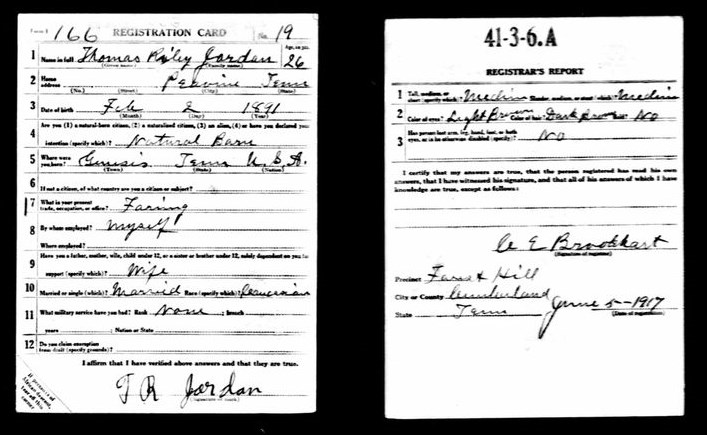 Form 1 166 REGISTRATION CARD No. 19
1 Name in full Thomas Riley Jordan Age, in yrs. 26
(Given name) (Family name)
2 Home address Peavine Tenn
(No.) (Street) (City) (State)
3 Date of birth Feb 2 1891
(Month) (Day) (Year)
Are you (1) a natural-born citizen, (2) a naturalized citizen, (3) an alien, (4) or have you declared your
4 intention (specify which)? Natural Born
5 Where were you born? Genesis Tenn U.S.A.
(Town) (State) (Nation)
6 If not a citizen, of what country are you a citizen or subject?
7 What is your present trade, occupation, or office? Faring
8 By whom employed? myself
Where employed?
9 Have you a father, mother, wife, child under 12, or a sister or brother under 12, solely dependent on you for
support (specify which)? Wife
10 Married or single (which)? Married Race (specify which)? Caucasian
11 What military service have you had? Rank None ; branch
years ; Nation or State
12 Do you claim exemption
from draft (specify grounds)?
I affirm that I have verified above answers and that they are true.
T R Jordan
If person is of African descent, tear off this corner
41-3-6.A
REGISTRAR'S REPORT
1 Tall, medium, or short (specify which)? Medium Slender, medium, or stout (which)? Medium
2 Color of eyes? Light Brown Color of hair? Dark Brown No
3 Has person lost arm, leg, hand, foot, or both
eyes, or is he otherwise disabled (specify)? No
I certify that my answers are true, that the person registered has read his own
answers, that I have witnessed his signature, and that all of his answers of which I have
knowledge are true, except as follows:
E Brookhart
(Signature of registrar)
Precinct Hill
City or County Cumberland
State Tenn June 5-1917
(Date of registration)